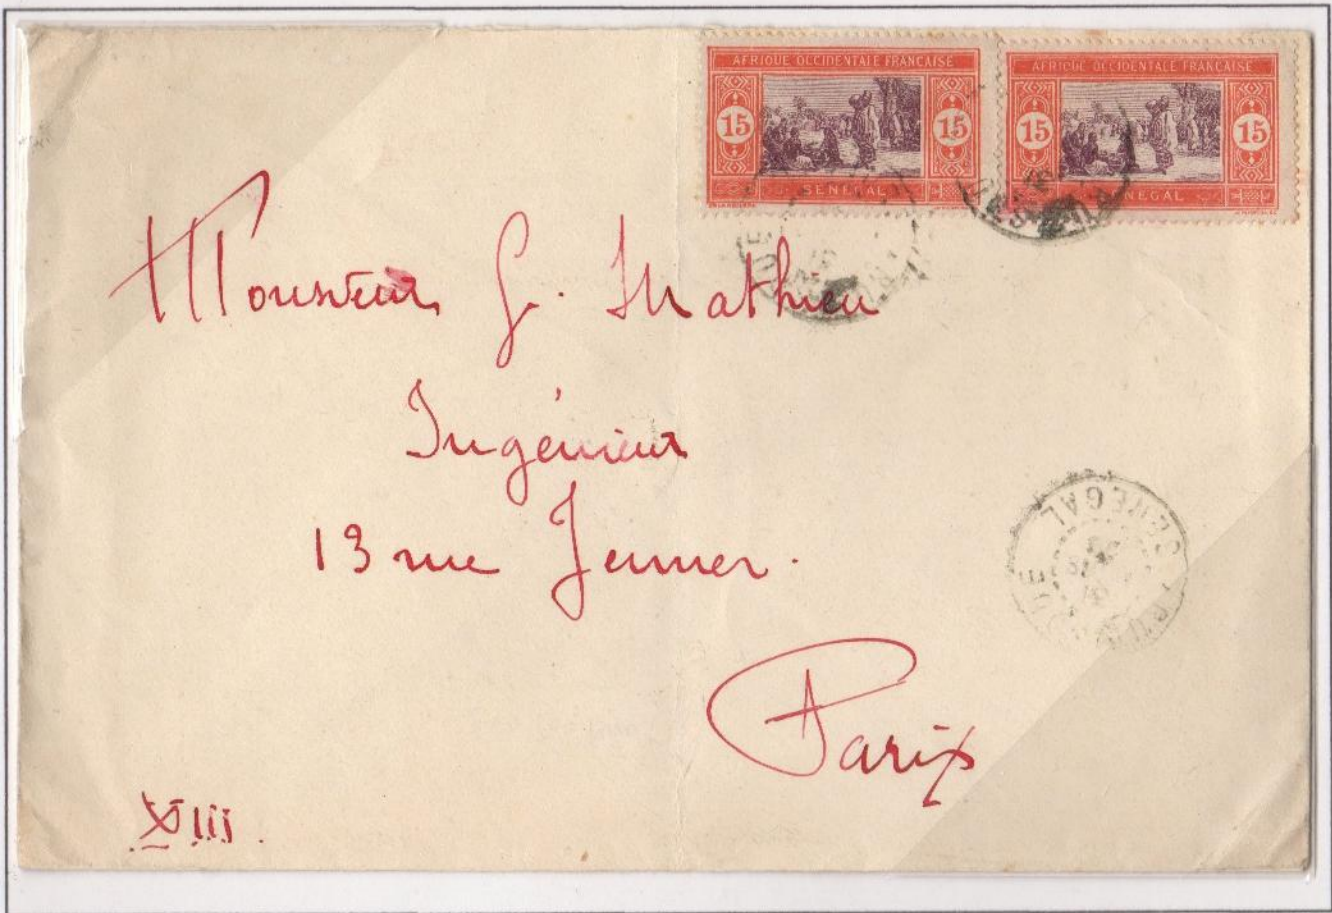 AFRIQUE OCCIDENTALE FRANÇAISE
15 15
SENEGAL
AFRIQUE OCCIDENTALE FRANÇAISE
15 15
SENEGAL
Monsieur G. Mathieu
Ingénieur
13 rue Jenner.
Paris
XIII.
SENEGAL